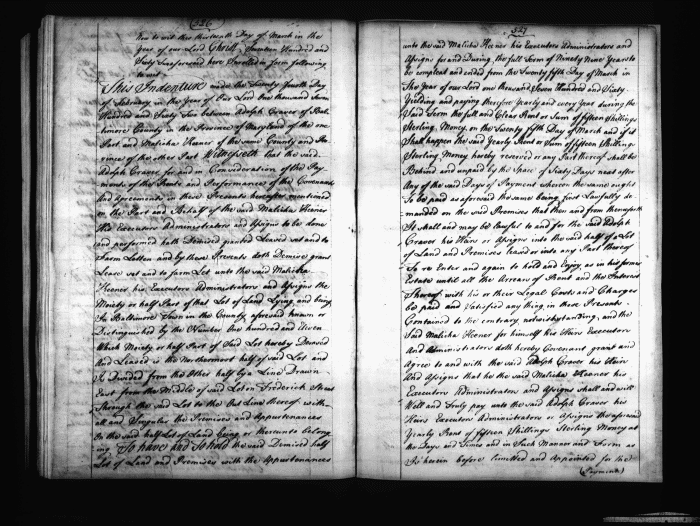 (326)
him to wit this thirteenth Day of March in the
year of our Lord Christ, Seventeen Hundred and
Sixty Two foresaid here Enrolled in form following
to wit
This Indenture made the Twenty fourth Day
of February in the Year of Our Lord One thousand Seven
Hundred and Sixty Two between Adolph Graver of Bal-
timore County in the Province of Maryland of the one
Part and Malicha Keener of the same County and Pro
vince of the other Part Witnesseth that the said
Adolph Graver for and in Consideration of the Pay
ments of the Rents and Performances of the Covenants
and Agreements in these Presents hereafter mentioned
on the Part and Behalf of the said Malicha Keener
His Executors Administrators and Assigns to be done
and performed hath Demised granted Leased set and to
Farm Letten and by these Presents doth Demise grant
Lease set and to farm Let unto the said Malicha
Keener his Executors Administrators and Assigns the
Moiety or half Part of that Lot of Land Lying and being
In Baltimore Town in the County aforesaid known or
Distinguished by the Number One hundred and Eleven
Which Moiety or half Part of Said Lot hereby Demised
And Leased is the Northermost half of said Lot and
Is Divided from the Other half by a Line Drawn
East from the Middle of said Lot on Frederick Street
Through the said Lot to the End Line thereof with
all and Singular the Premises and Appurtenances
To the said half Lot of Land being or thereunto belong
ing To have and To hold the said Demised half
Lot of Land and Premises with the Appurtenances
327
unto the said Malicha Keener his Executors Administrators and
Assigns for and During the full Term of Ninety Nine Years to
be compleat and ended from the Twenty fifth Day of March in
The Year of our Lord one thousand Seven Hundred and Sixty
Yielding and paying therefore Yearly and every year during the
Said Term the full and Clear Rent or Sum of fifteen Shillings
Sterling Money, on the Twenty fifth Day of March and if it
Shall happen the said Yearly Rent or Sum of fifteen Shillings
Sterling Money hereby reserved or any Part thereof shall be
Behind and unpaid by the Space of Sixty Days next after
Any of the said Days of Payment whereon the same ought
To be paid as aforesaid the same being first Lawfully de
manded on the said Premises that then and from thenceforth
It shall and may be lawful to and for the said Adolph
Graver his Heirs or Assigns into the said half of a Lot
of Land and Premises leased or into any Part thereof
To re Enter and again to hold and Enjoy as in his former
Estate until all the Arrears of Rent and the Interest
Thereof with his or their Legal Costs and Charges
be paid and Satisfied any thing in these Presents
Contained to the contrary notwithstanding, and the
Said Malicha Keener for himself his Heirs Executors
and Administrators doth hereby Covenant grant and
Agree to and with the said Adolph Graver his Heirs
And Assigns that he the said Malicha Keener his
Executors Administrators and Assigns shall and will
Well and Truly pay unto the said Adolph Graver his
Heirs Executors Administrators or Assigns the aforesaid
Yearly Rent of fifteen Shillings Sterling Money at
the Days and Times and in Such Manner and Form as
Is herein before limitted and Appointed for the
(Payment)